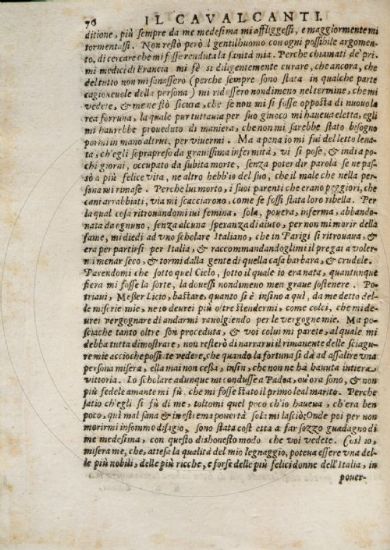 76 IL CAVALCANTI.
ditione, più sempre da me medesima mi affliggessi, e maggiormente mi
tormentassi. Non restò però il gentilhuomo con ogni possibile argomen-
to, di cercare che mi fosse renduta la sanità mia. Perche chiamati de' pri-
mi medici di Francia mi fè sì diligentemente curare, che ancora, che
del tutto non mi sanassero (perche sempre sono stata in qualche parte
cagioneuole della persona) mi ridussero nondimeno nel termine, che mi
vedete, & me nè stò sicura, che se non mi si fosse opposta di nuouo la
rea fortuna, la quale per tuttauia per suo giuoco mi haueua eletta, egli
mi haurebbe proueduto di maniera, che non mi sarebbe stato bisogno
pormi in mano altrui, per viuermi. Ma a pena io mi fui del letto leua-
ta, ch'egli sopra preso da grauissima infermità, vi si pose, & indi a po-
chi giorni, occupato da subita morte, senza poter dir parola se ne pas-
sò a più felice vita, ne altro hebb'io del suo, che il male che nella per-
sona mi rimase. Perche lui morto, i suoi parenti che erano peggiori, che
cani arrabbiati, via mi scacciarono, come se fossi stata loro ribella. Per
la qual cosa ritrouandomi iui femina, sola, pouera, inferma, abbando-
nata da ognuno, senza alcuna speranza d'aiuto, per non mi morir della
fame, mi diedi ad vno scholare Italiano, che in Parigi si ritrouaua, &
era per partirsi per Italia, & raccommandandoglimi il pregai a voler
mi menar seco, & tormi dalla gente di quella casa barbara, & crudele.
Parendomi che sotto quel Cielo, sotto il quale io era nata, quantunque
fiera mi fosse la sorte, la douessi nondimeno men graue sostenere. Po-
triaui, Messer Licio, bastare, quanto si è insino a quì, da me detto del-
le miserie mie; ne io deurei più oltre stendermi, come colei, che mi de-
urei vergognare di andarmi rauolgendo per le vergogne mie. Ma po-
sciache tanto oltre son proceduta, & voi colui mi parete, al quale mi
debba tutta dimostrare, non resterò di narrarui il rimanente delle sciagu-
re mie acciò che possiate vedere, che quando la fortuna si dà ad assalire vna
persona misera, ella mai non cessa, insin, che non ne ha hauuta intiera
vittoria. Lo scholare adunque mi condusse a Padoa, ou'ora sono, & non
più fedele amante mi fù, che mi fosse stato il primo leal marito. Perche
satio ch'egli si fù di me, toltomi quel poco ch'io haueua, ch'era ben
poco, quì mal sana & in estrema pouertà sola mi lasciò; Onde poi per non
morirmi in sommo disagio, sono stata costretta a far sozzo guadagno di
me medesima, con questo dishonesto modo che voi vedete. Così io,
misera me, che, attesa la qualità del mio legnaggio, poteua essere vna del-
le più nobili, delle più ricche, e forse delle più felici donne dell'Italia, in
pouer-